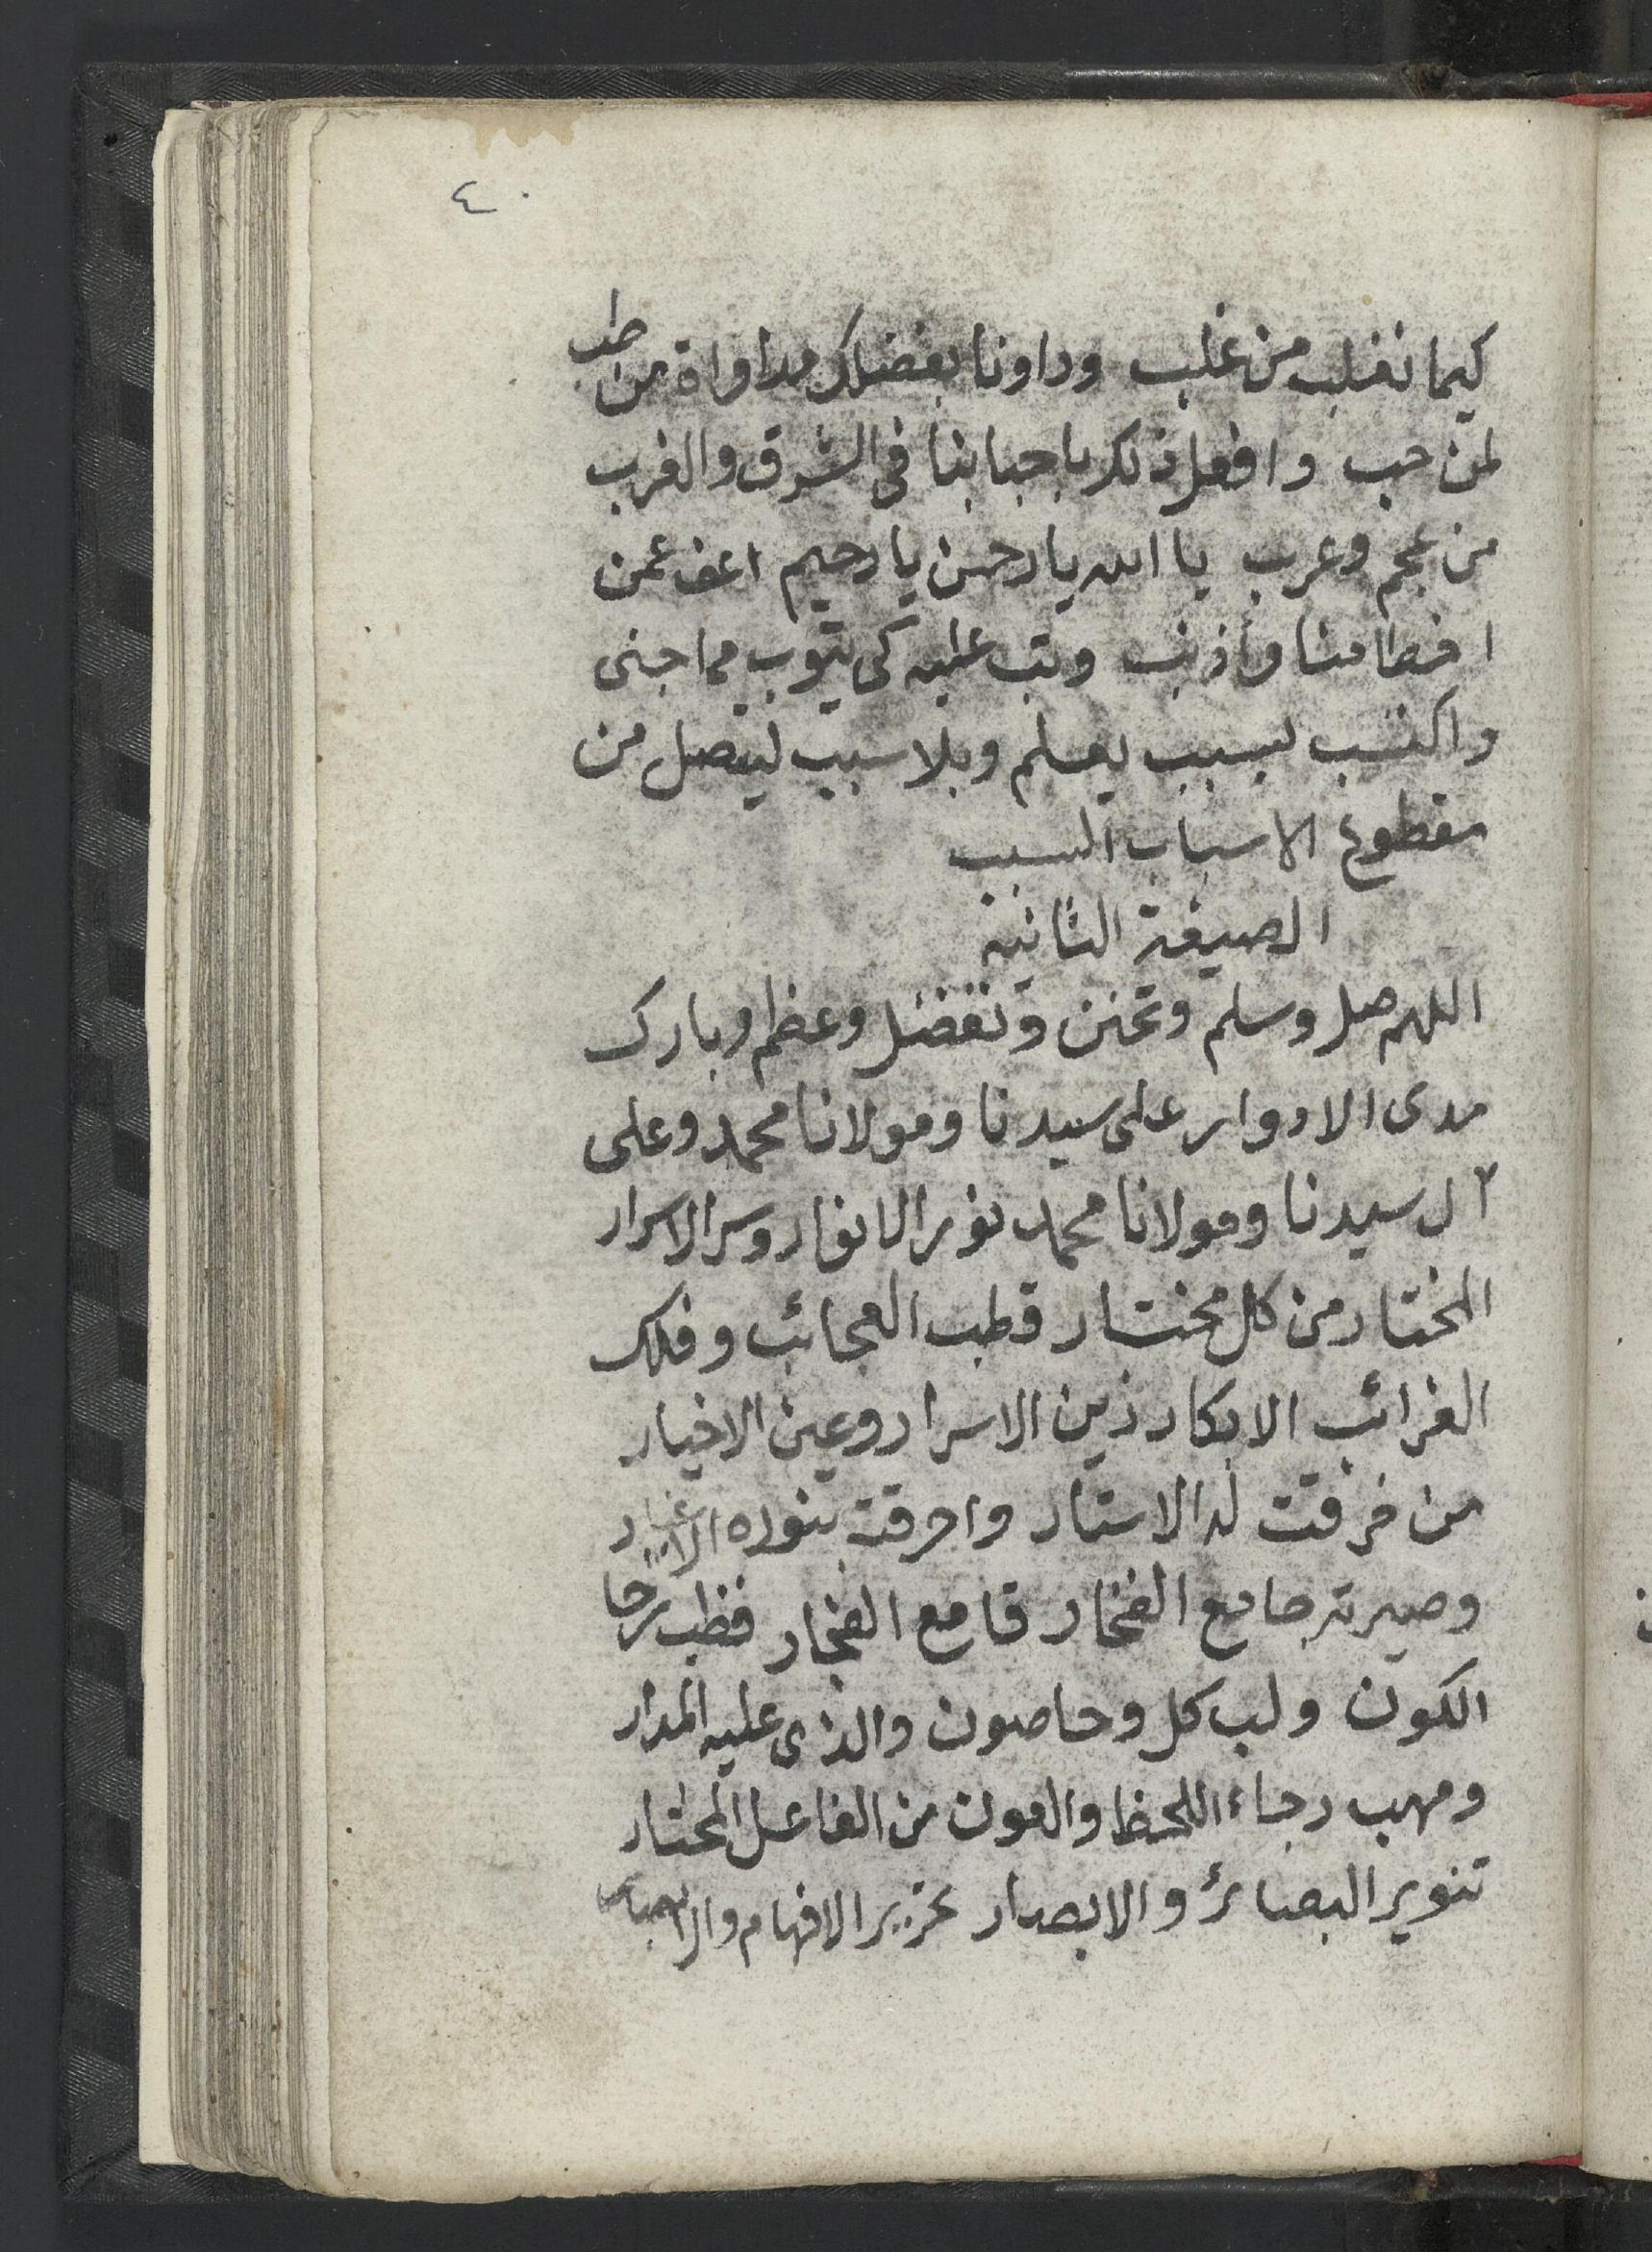 ٤٠
كيما نغلب من غلب وداونا بفضلك مداواة من طب
لمن حب وافعل ذلك باحبابنا في الشرق والغرب
من عجم وعرب يا الله يا رحمن يا رحيم اعف عمن
اخطا منا وأذنب وتب عليه كى يتوب مما جنى
واكتسب بسبب يعلم وبلا سبب ليتصل من
مقطوع الاسباب السبب
الصيغة الثانية
اللهم صل وسلم وتحنن وتفضل وعظم وبارك
مدى الادوار على سيدنا ومولانا محمد وعلى
آل سيدنا ومولانا محمد نور الانوار وسر الاسرار
المختار من كل مختار قطب العجائب وفلك
الغرائب الابكار زين الاسرار وعين الاخيار
من خرقت له الاستار واحرقت بنوره الاغيار
وصيرته جامع الفخار قامع الفجار قطب رحا
الكون ولب كل وحا صون والذى عليه المدار
ومهب رجاء اللحظ والعون من الفاعل المختار
تنوير البصائر والابصار تحرير الافهام و